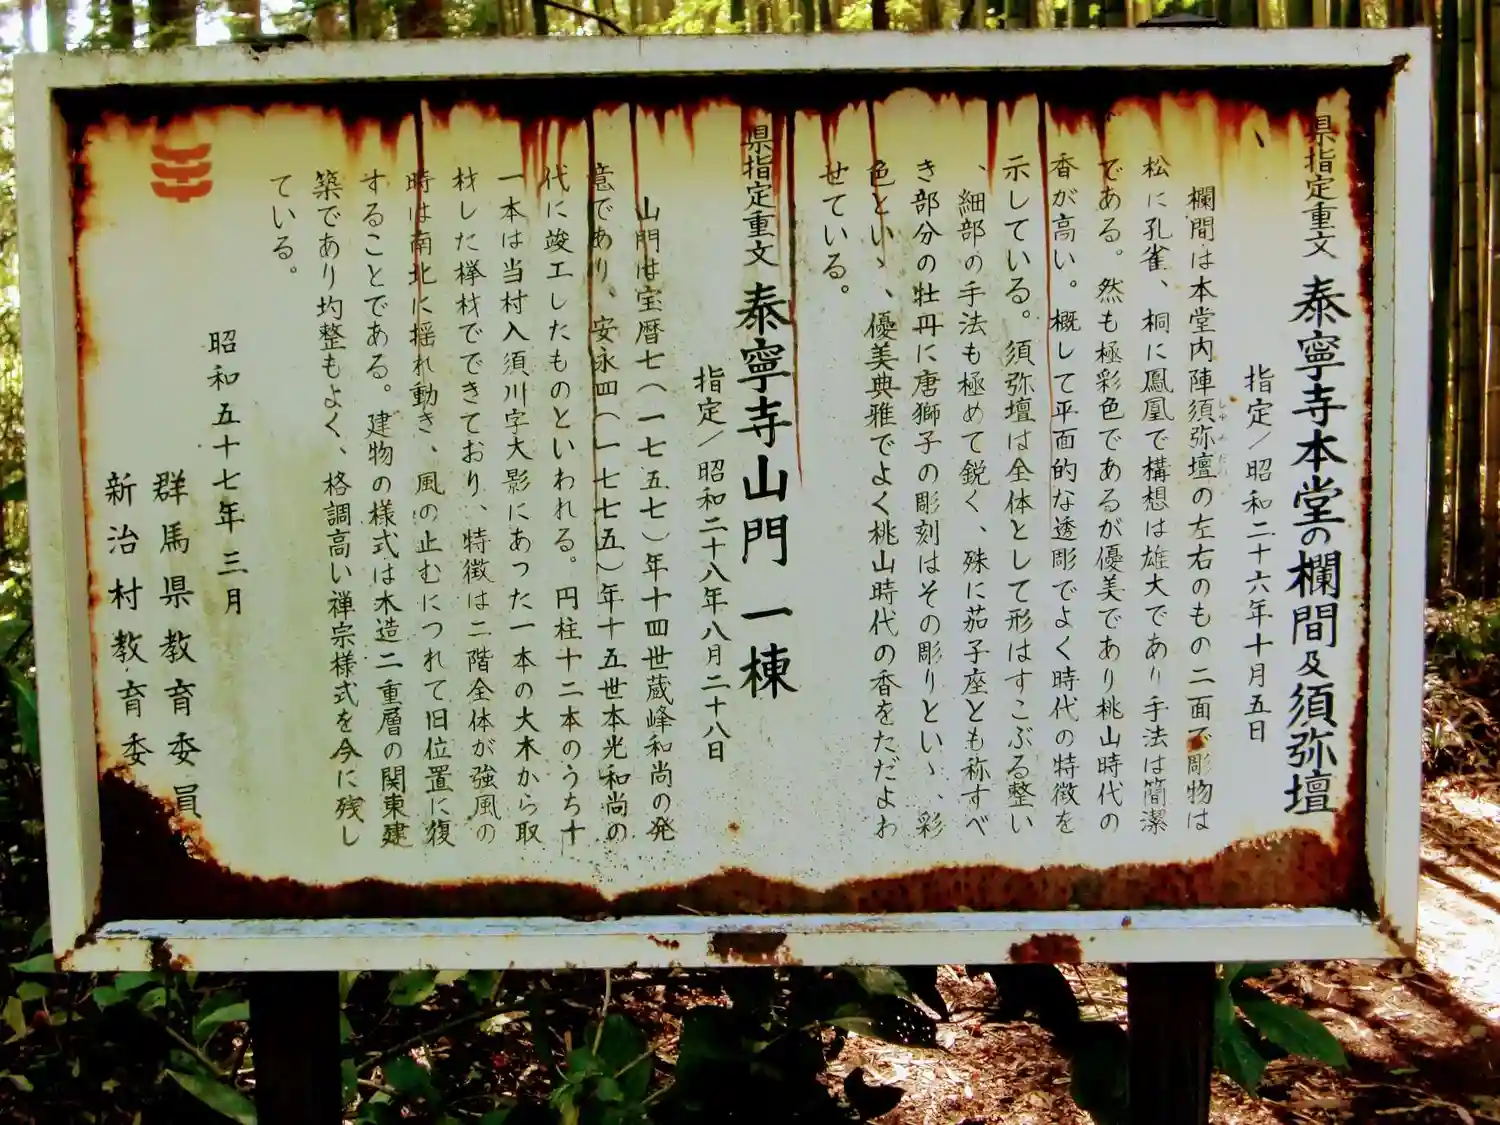 県指定重文 泰寧寺本堂の欄間及須弥壇
指定/昭和二十六年十月五日
欄間は本堂内陣須弥壇の左右のもの二面で彫物は
松に孔雀、桐に鳳凰で構想は雄大であり手法は簡潔
である。然も極彩色であるが優美であり桃山時代の
香が高い。概して平面的な透彫でよく時代の特徴を
示している。須弥壇は全体として形はすこぶる整い
、細部の手法も極めて鋭く、殊に茄子座とも称すべ
き部分の牡丹に唐獅子の彫刻はその彫りといゝ、彩
色といゝ、優美典雅でよく桃山時代の香をただよわ
せている。
県指定重文 泰寧寺山門 一棟
指定/昭和二十八年八月二十八日
山門は宝暦七(一七五七)年十四世蔵峰和尚の発
意であり、安永四(一七七五)年十五世本光和尚の
代に竣工したものといわれる。円柱十二本のうち十
一本は当村入須川字大影にあった一本の大木から取
材した欅材でできており、特徴は二階全体が強風の
時は南北に揺れ動き、風の止むにつれて旧位置に復
することである。建物の様式は木造二重層の関東建
築であり均整もよく、格調高い禅宗様式を今に残し
ている。
昭和五十七年三月
群馬県教育委員
新治村教育委